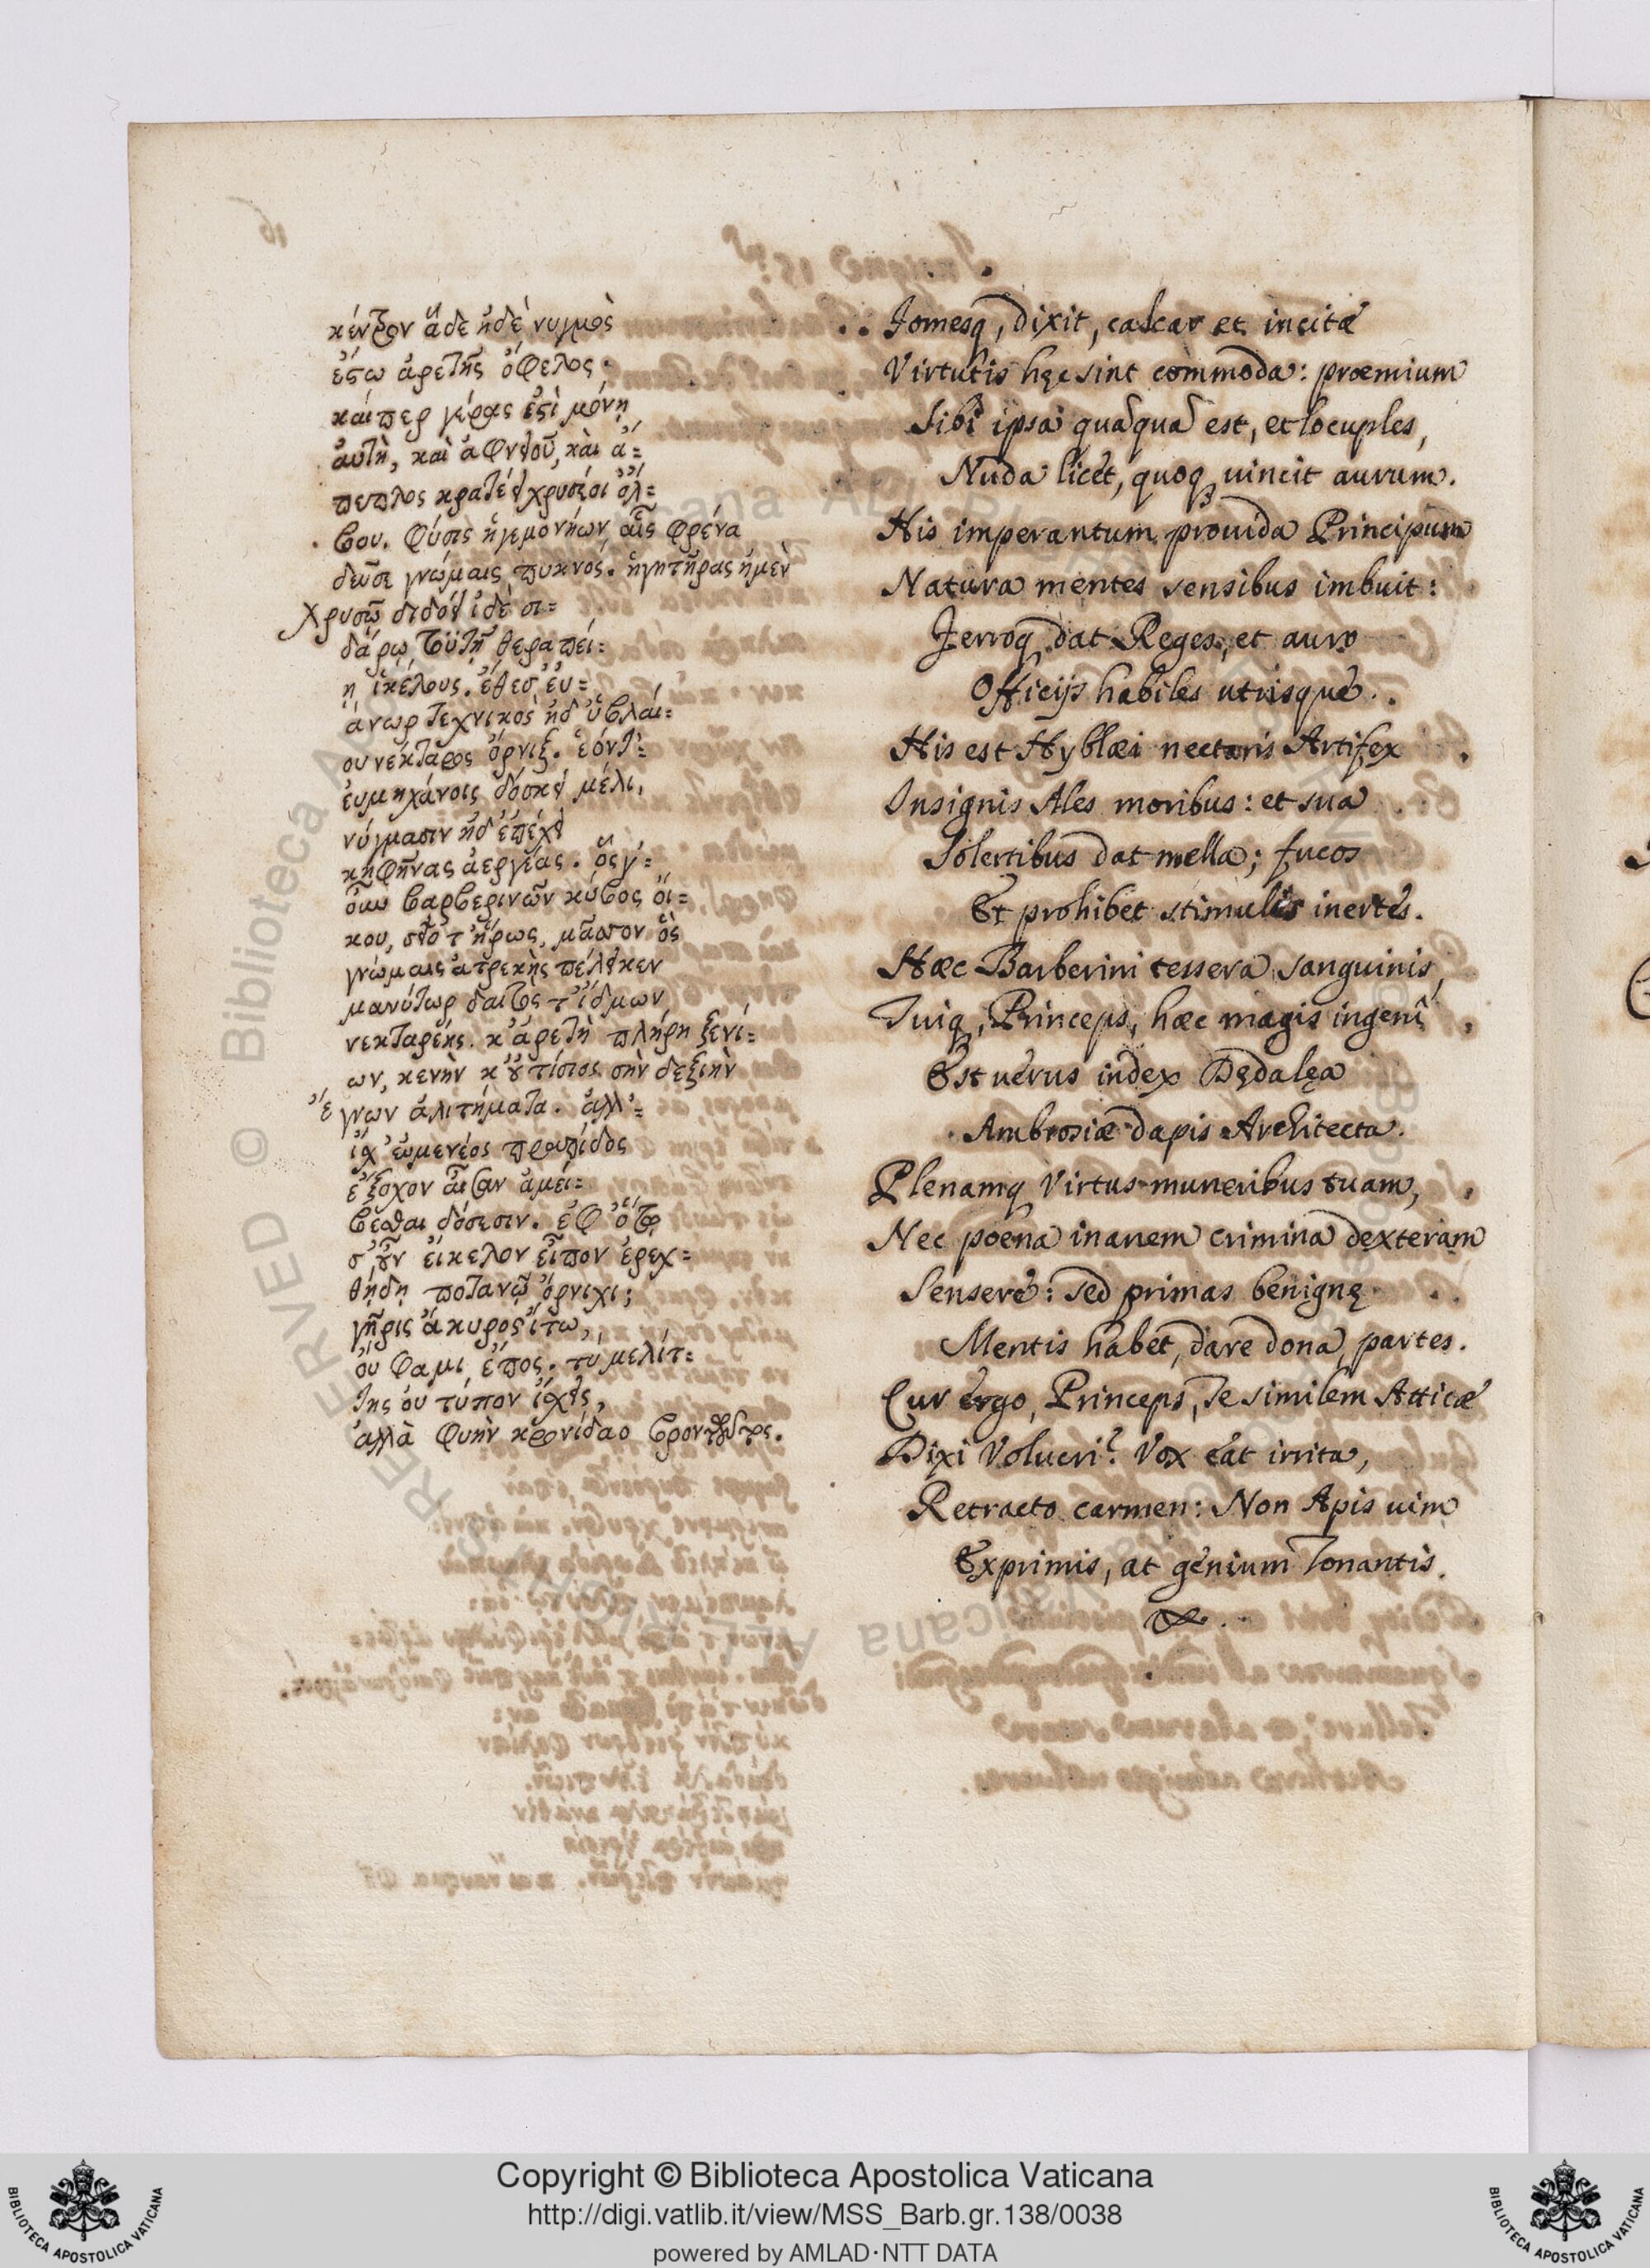 κέντρον ἅδε ἠδὲ νυγμὸς
ἔστω ἀρετῆς ὄφελος·
καίπερ γέρας ἐστὶ μόνη
αὐτὴ, καὶ ἀφνειοῦ, καὶ ἄ=
πεπλος κρατέει χρυσέοι ὄλ=
βου. φύσις ἡγεμονήων, αἷς φρένα
δεῦσε γνώμαις πυκνός. ἡγητῆρας ἠμὲν
χρυσῷ διδόει ἰδὲ σι=
δάρῳ θεραπεί=
η ἰκέλους. ἔθεσ' εὐ=
άνωρ τεχνικὸς ἠδ' ὑβλαί=
ου νέκταρος ὄρνιξ. ἑόντ'=
εὐμηχάνοις δόσκει μέλι,
νύγμασιν ἠδ' ἐπέχει
κηφῆνας ἀεργέας. ὅς γ'=
βαρβερινῶν κύβος οἴ=
κου, ἥρως, μᾶσσον ὃς
γνώμαις ἀτρεκὴς πέλει κεν
μανύτωρ δαιτὸς τ' ἴδμων
νεκταρέης. κ' ἀρετὴ πλήρη ξενί=
ων, κενὴν κ' οὐ τίσιος σὴν δεξιὴν
ἔγνων ἀλιτήματα. ἀλλ'=
ἰχ' εὐμενέος πραπίδος
ἔξοχον αἶσαν ἀμεί=
βεσθαι δόσεσιν. ἐφ' ὅτῳ
σ' οὖν εἴκελον εἶπον ἐρεχ=
θηΐδη ποτανῷ ὄρνιχι;
γῆρις ἄκυρος ἴτω,
οὔ φαμι ἔπος. τὺ μελίτ=
της οὐ τύπον ἴχεις,
ἀλλὰ φυὴν κρονίδαο
Fomesq, dixit, calcar et incitæ
Virtutis hęc sint commoda: præmium
Sibi ipsa quāquā est, et locuples,
Nuda licet, quoq uincit aurum.
His imperantum prouida Principum
Natura mentes sensibus imbuit:
Ferroq dat Reges, et auro
Officijs habiles utrisque.
His est Hyblæi nectaris Artifex
Insignis Ales moribus: et sua
Solertibus dat mella; fucos
Et prohibet stimulis inertes.
Hæc Barberini tessera sanguinis,
Tuiq, Princeps, hæc magis ingenî
Est uerus index Dędalęa
Ambrosiæ dapis Architecta.
Plenamq Virtus muneribus tuam,
Nec poena inanem crimina dexteram
Sensere: sed primas benignę
Mentis habet, dare dona, partes.
Cur ergo, Princeps, Te similem Atticæ
Dixi Volucri? Vox eat irrita,
Retracto carmen: Non Apis uim
Exprimis, at genium Tonantis.
Copyright © Biblioteca Apostolica Vaticana
http://digi.vatlib.it/view/MSS_Barb.gr.138/0038
powered by AMLAD·NTT DATA
BIBLIOTECA APOSTOLICA VATICANA
BIBLIOTECA APOSTOLICA VATICANA